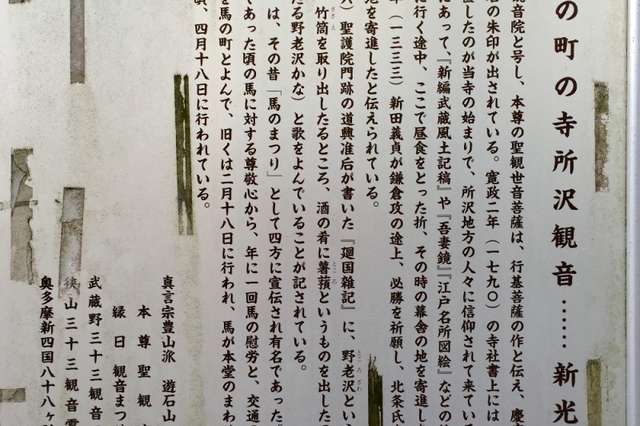 の町の寺所沢観音……新光
観音院と号し、本尊の聖観世音菩薩は、行基菩薩の作と伝え、慶
の朱印が出されている。寛政二年（一七九〇）の寺社書上には
したのが当寺の始まりで、所沢地方の人々に信仰されて来ている
にあって、『新編武蔵風土記稿』や『吾妻鏡』『江戸名所図絵』などの
に行く途中、ここで昼食をとった折、その時の幕舎の地を寄進し
年（一三三三）新田義貞が鎌倉攻の途上、必勝を祈願し、北条氏
地を寄進したと伝えられている。
六）聖護院門跡の道興准后が書いた『廻国雑記』に、野老沢とい
竹筒を取り出したるところ、酒の肴に薯蕷というものを出した
たる野老沢かな）と歌をよんでいることが記されている。
は、その昔「馬のまつり」として四方に宣伝され有名であった
くであった頃の馬に対する尊敬心から、年に一回馬の慰労と、交通
を馬の町とよんで、旧くは二月十八日に行われ、馬が本堂のまわ
頃、四月十八日に行われている。
真言宗豊山派 遊石山
本尊聖観
縁日観音まつ
武蔵野三十三観音
狭山三十三観音霊
奥多摩新四国八十八ヶ